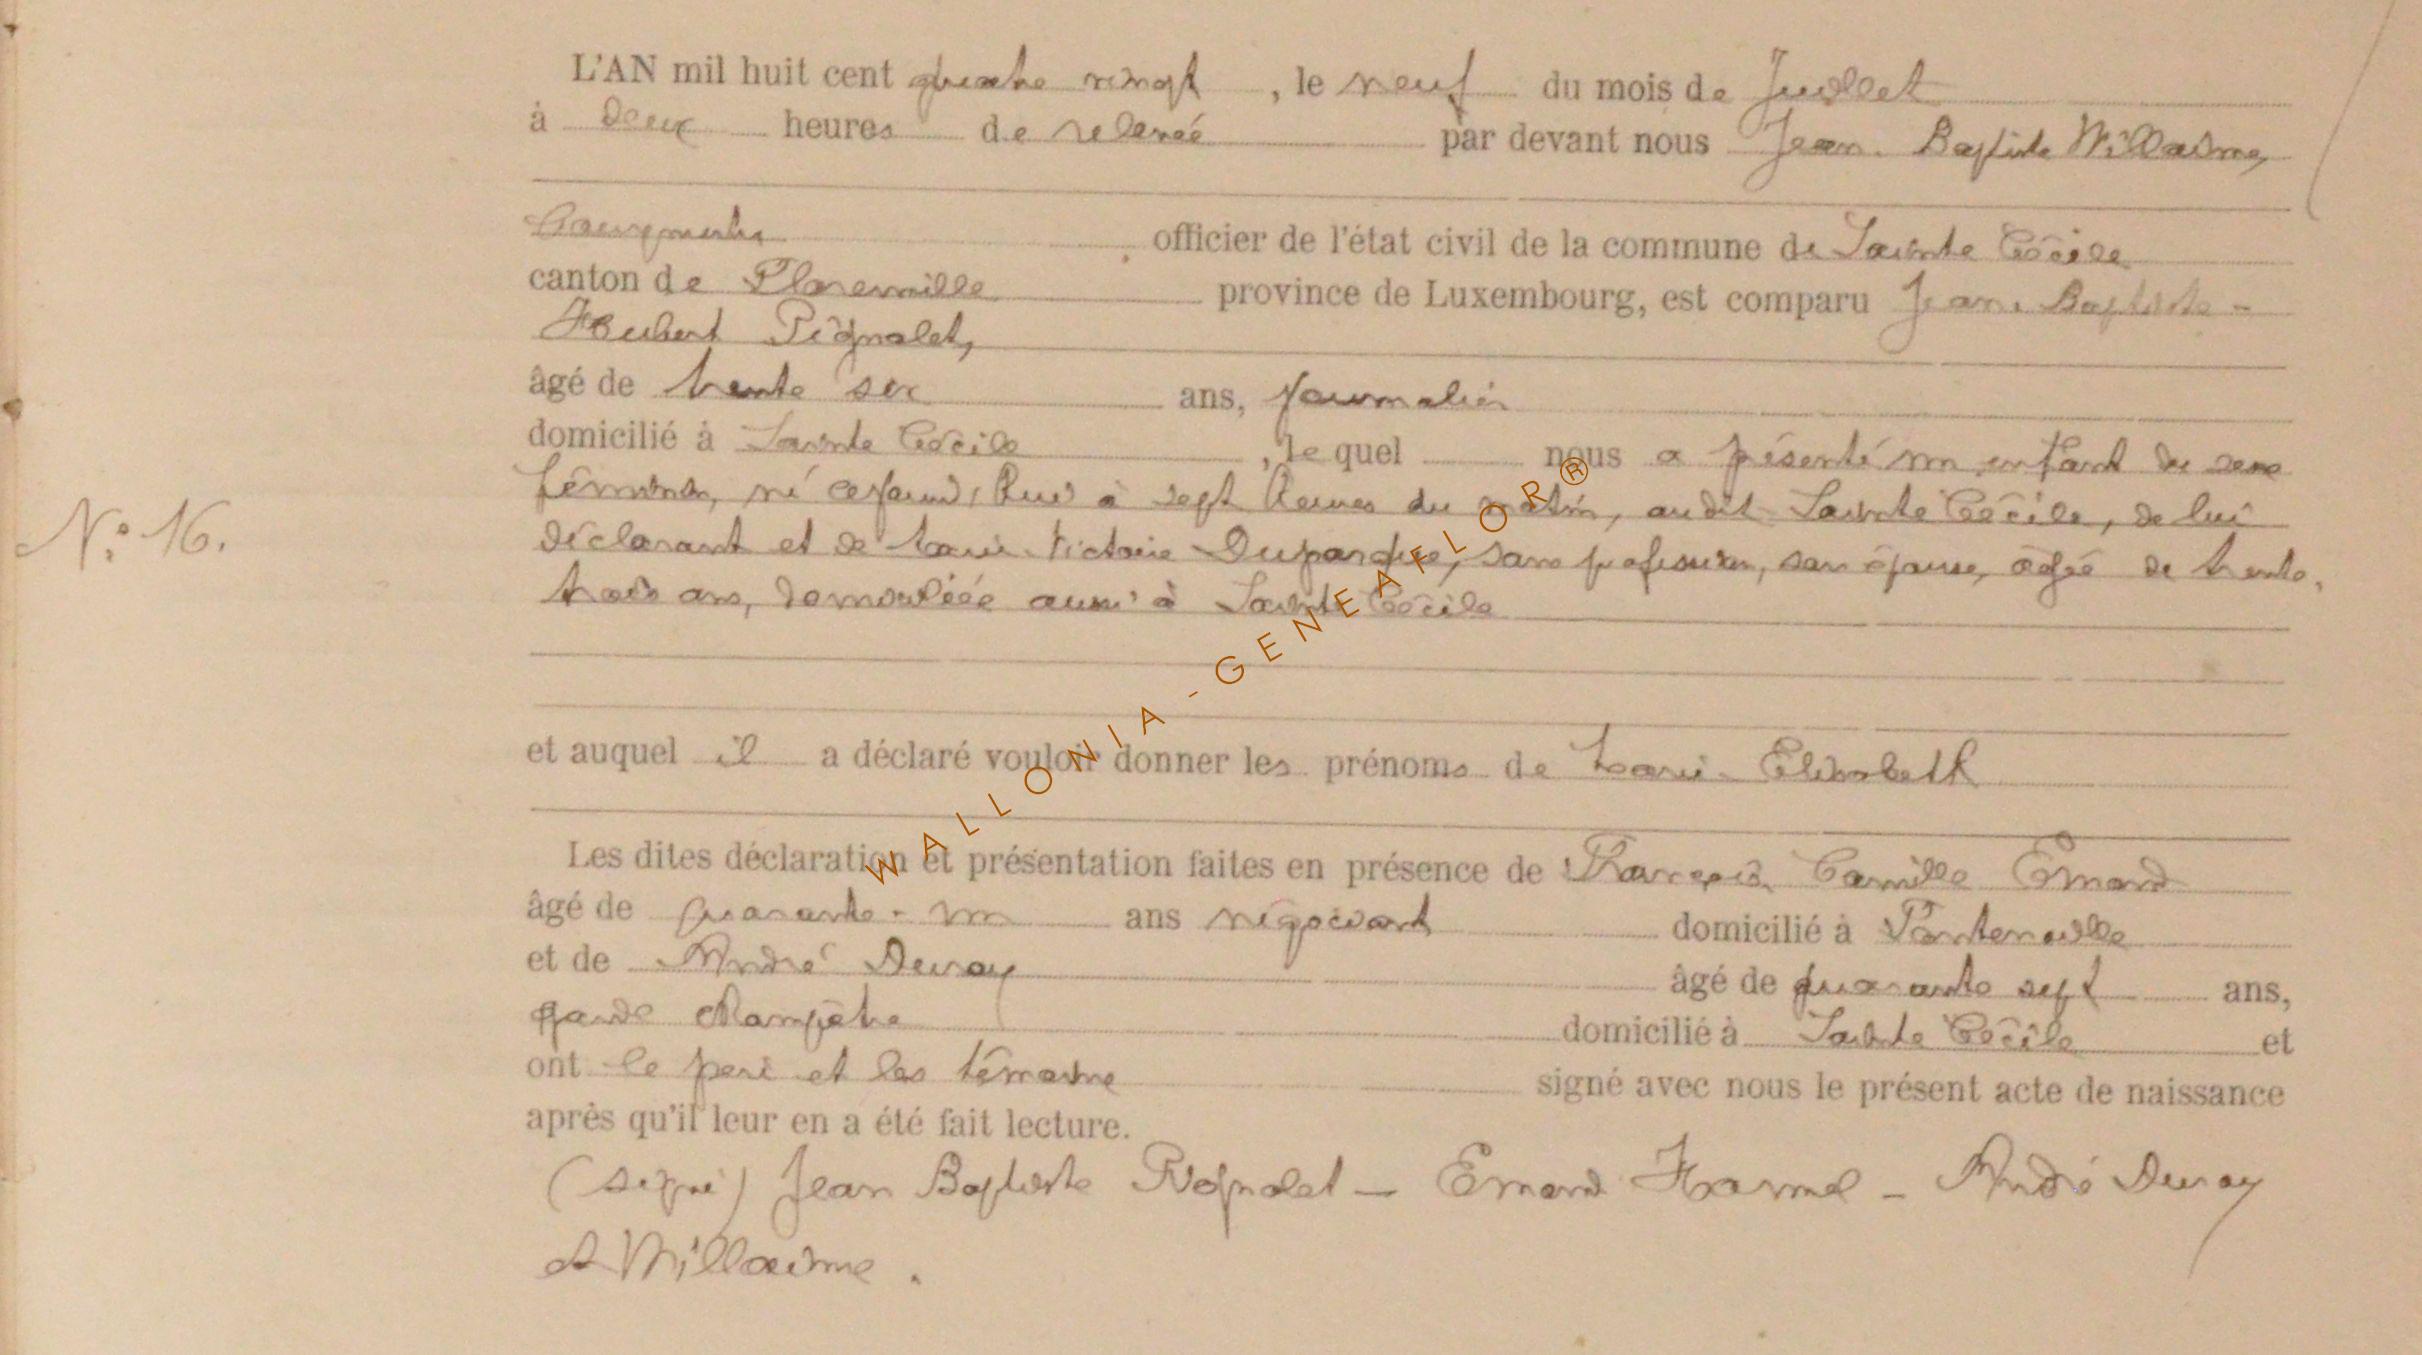 L'AN mil huit cent quatre vingt, le neuf du mois de Juillet
à deux heures de relevée par devant nous Jean Baptiste Willaime,
Bourgmestre officier de l'état civil de la commune de Sainte Cécile
canton de Florenville province de Luxembourg, est comparu Jean Baptiste -
Hubert Pignolet,
âgé de trente six ans, journalier
domicilié à Sainte Cécile, le quel nous a présenté un enfant du sexe
féminin, né ce jourd'hui à sept heures du matin, audit Sainte Cécile, de lui
déclarant et de Marie Victoire Duparque, sans profession, son épouse, âgée de trente
N° 16.
trois ans, domiciliée aussi à Sainte Cécile
et auquel il a déclaré vouloir donner les prénoms de Marie Elisabeth
Les dites déclaration et présentation faites en présence de François Camille Emond
âgé de quarante-un ans négociant domicilié à Fontenoille
et de André Devray âgé de quarante sept ans,
garde champêtre domicilié à Sainte Cécile et
ont le père et les témoins signé avec nous le présent acte de naissance
après qu'il leur en a été fait lecture.
(signé) Jean Baptiste Pignolet - Emond Hamel - André Devray
et Willaime.
WALLONIA-GENEAFLOR®